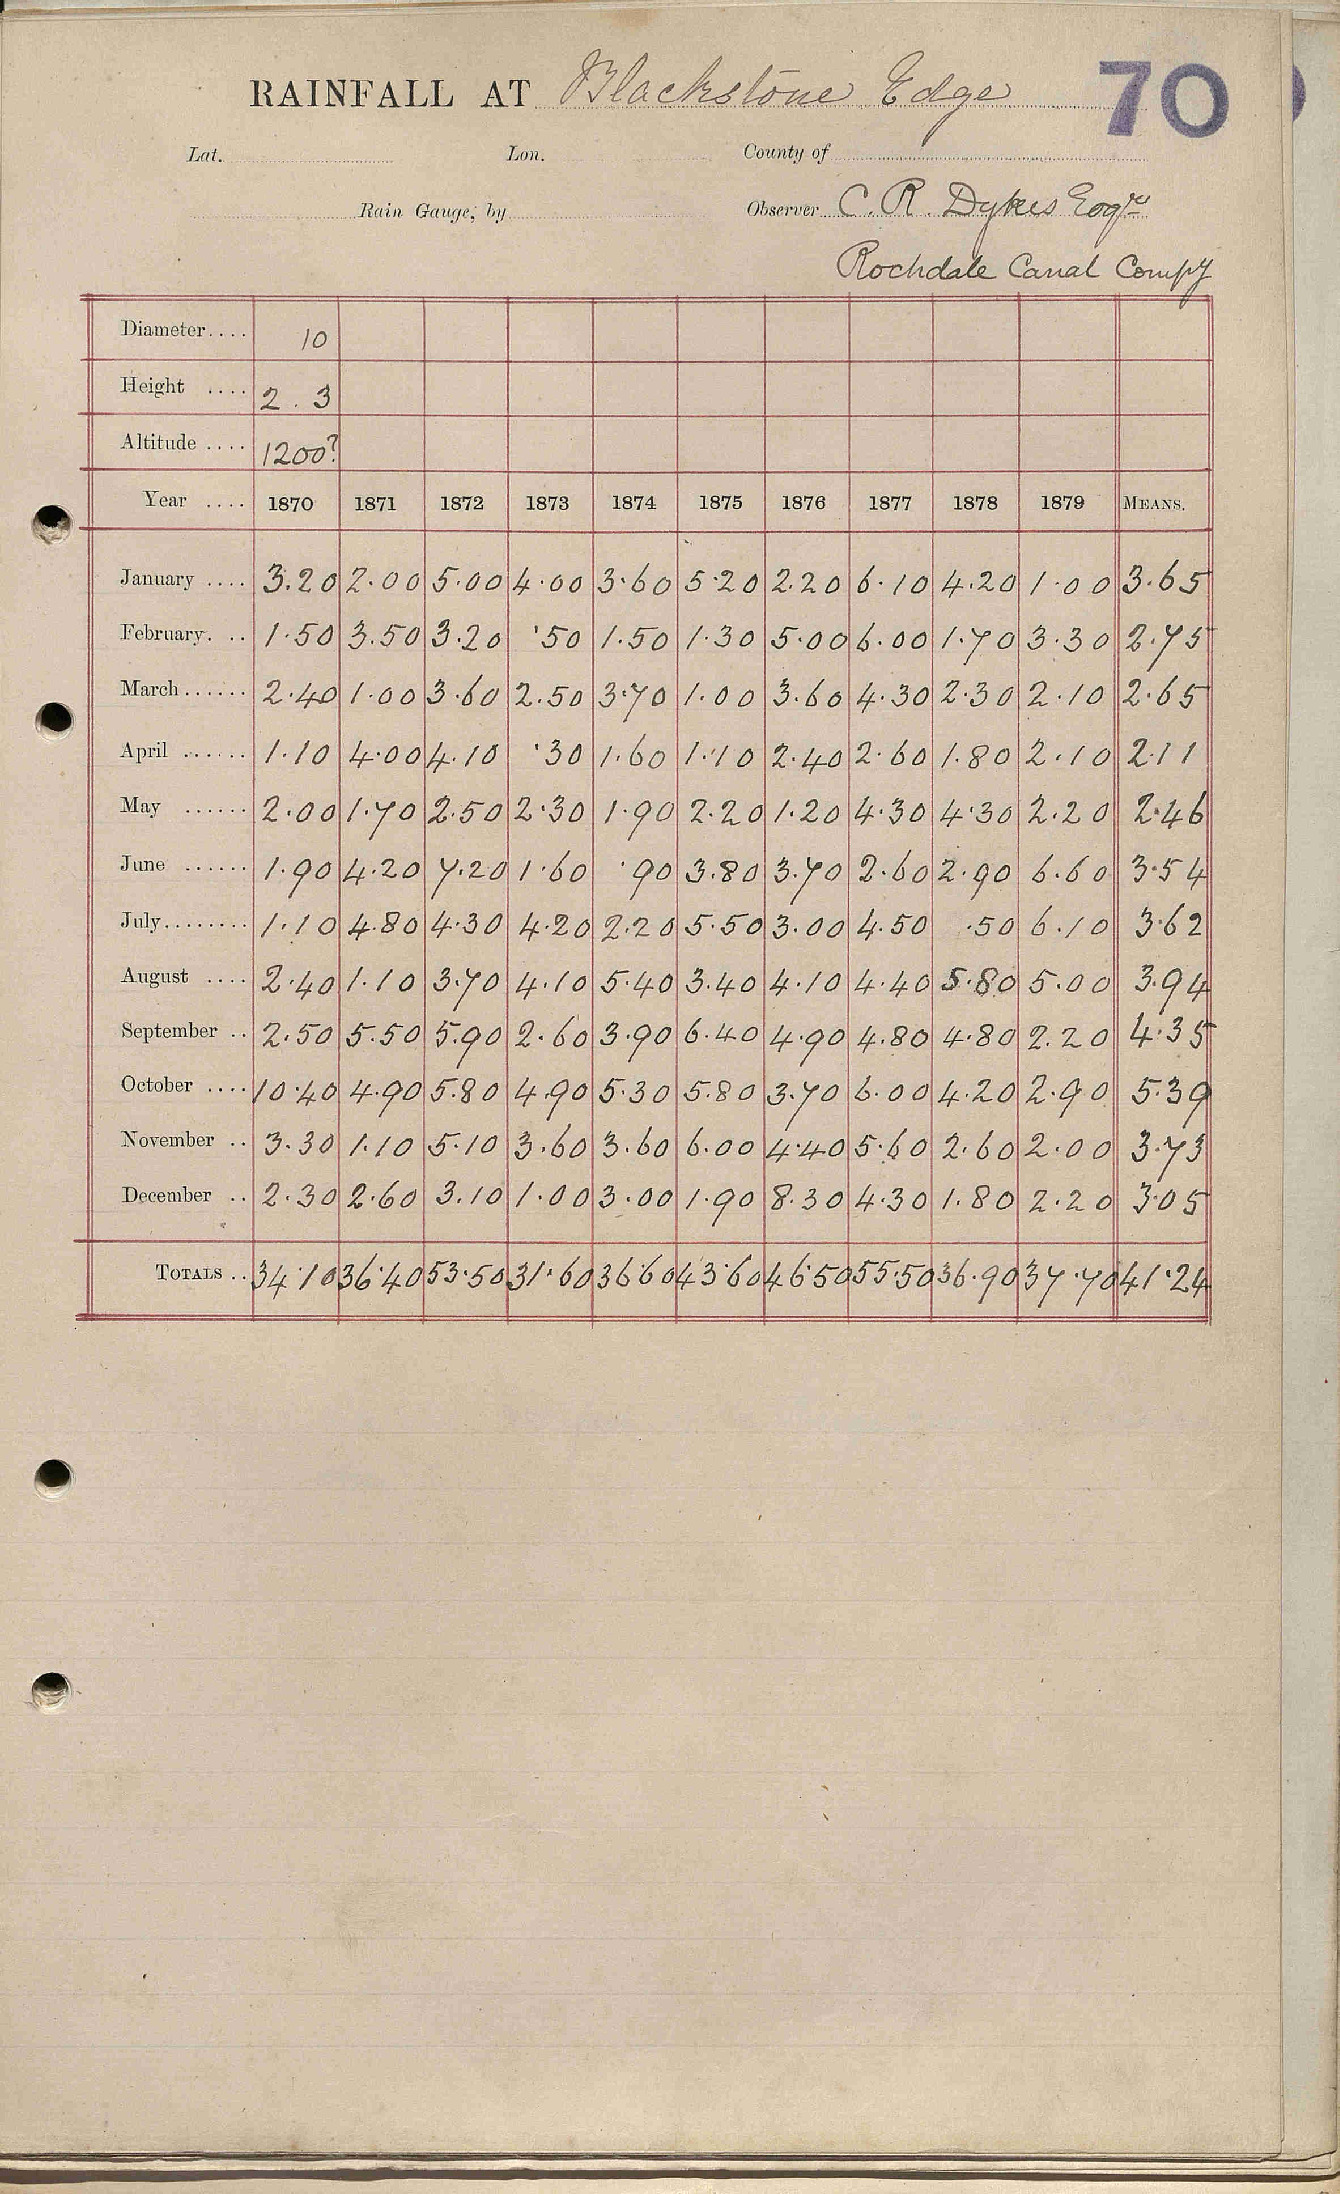 RAINFALL AT Blackstone Edge 70
Lat. Lon. County of
Rain Gauge, by Observer C. R. Dykes Esqre
Rochdale Canal Compy
Diameter.... 10
Height .... 2 . 3
Altitude .... 1200?
Year .... 1870 1871 1872 1873 1874 1875 1876 1877 1878 1879 MEANS.
January .... 3.20 2.00 5.00 4.00 3.60 5.20 2.20 6.10 4.20 1.00 3.65
February. .. 1.50 3.50 3.20 .50 1.50 1.30 5.00 6.00 1.70 3.30 2.75
March...... 2.40 1.00 3.60 2.50 3.70 1.00 3.60 4.30 2.30 2.10 2.65
April ...... 1.10 4.00 4.10 .30 1.60 1.10 2.40 2.60 1.80 2.10 2.11
May ...... 2.00 1.70 2.50 2.30 1.90 2.20 1.20 4.30 4.30 2.20 2.46
June ...... 1.90 4.20 7.20 1.60 .90 3.80 3.70 2.60 2.90 6.60 3.54
July........ 1.10 4.80 4.30 4.20 2.20 5.50 3.00 4.50 .50 6.10 3.62
August .... 2.40 1.10 3.70 4.10 5.40 3.40 4.10 4.40 5.80 5.00 3.94
September .. 2.50 5.50 5.90 2.60 3.90 6.40 4.90 4.80 4.80 2.20 4.35
October .... 10.40 4.90 5.80 4.90 5.30 5.80 3.70 6.00 4.20 2.90 5.39
November .. 3.30 1.10 5.10 3.60 3.60 6.00 4.40 5.60 2.60 2.00 3.73
December .. 2.30 2.60 3.10 1.00 3.00 1.90 8.30 4.30 1.80 2.20 3.05
TOTALS .. 34.10 36.40 53.50 31.60 36.60 43.60 46.50 55.50 36.90 37.70 41.24